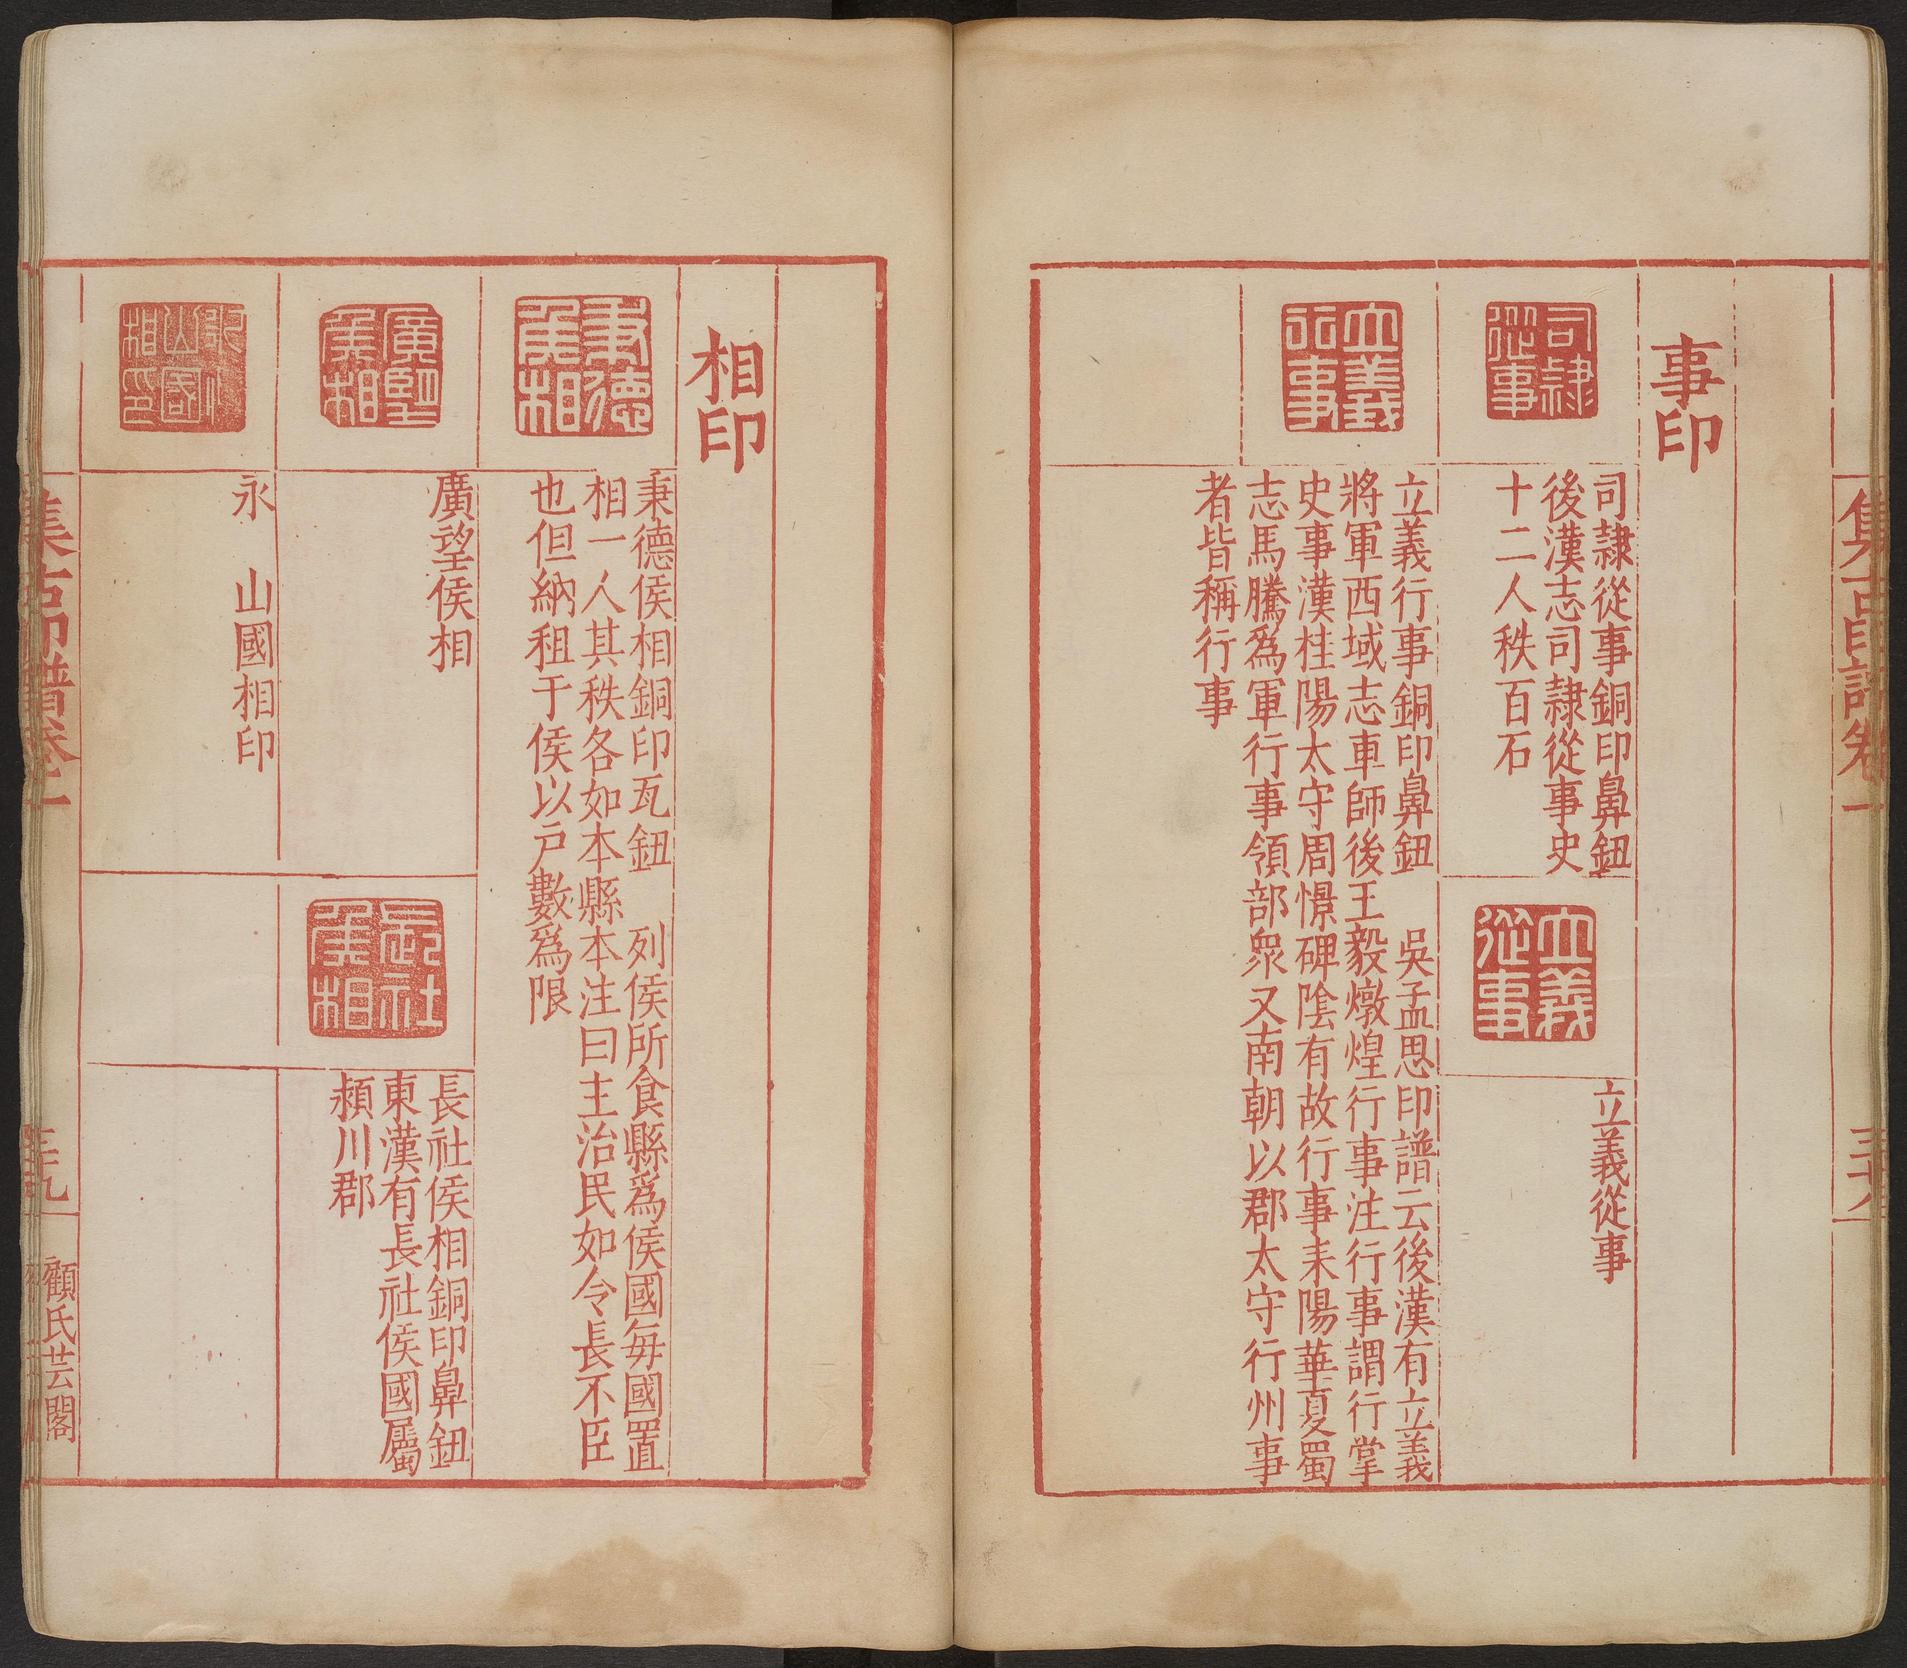 集古印譜卷一
事印
司隸從事
司隸從事銅印鼻鈕
後漢志司隸從事史
十二人秩百石
立義從事
立義從事
立義行事
立義行事銅印鼻鈕　吳孟思印譜云後漢有立義
將軍西域志車師後王毅燉煌行事注行事謂行掌
史事漢桂陽太守周憬碑陰有故行事耒陽華夏蜀
志馬騰爲軍行事領部衆又南朝以郡太守行州事
者皆稱行事
相印
秉德侯相
秉德侯相銅印瓦鈕　列侯所食縣爲侯國每國置
相一人其秩各如本縣本注曰主治民如令長不臣
也但納租于侯以戶數爲限
廣望侯相
廣望侯相
長社侯相
長社侯相銅印鼻鈕
東漢有長社侯國屬
潁川郡
山國相印
永　山國相印
集古印譜卷一
顧氏芸閣